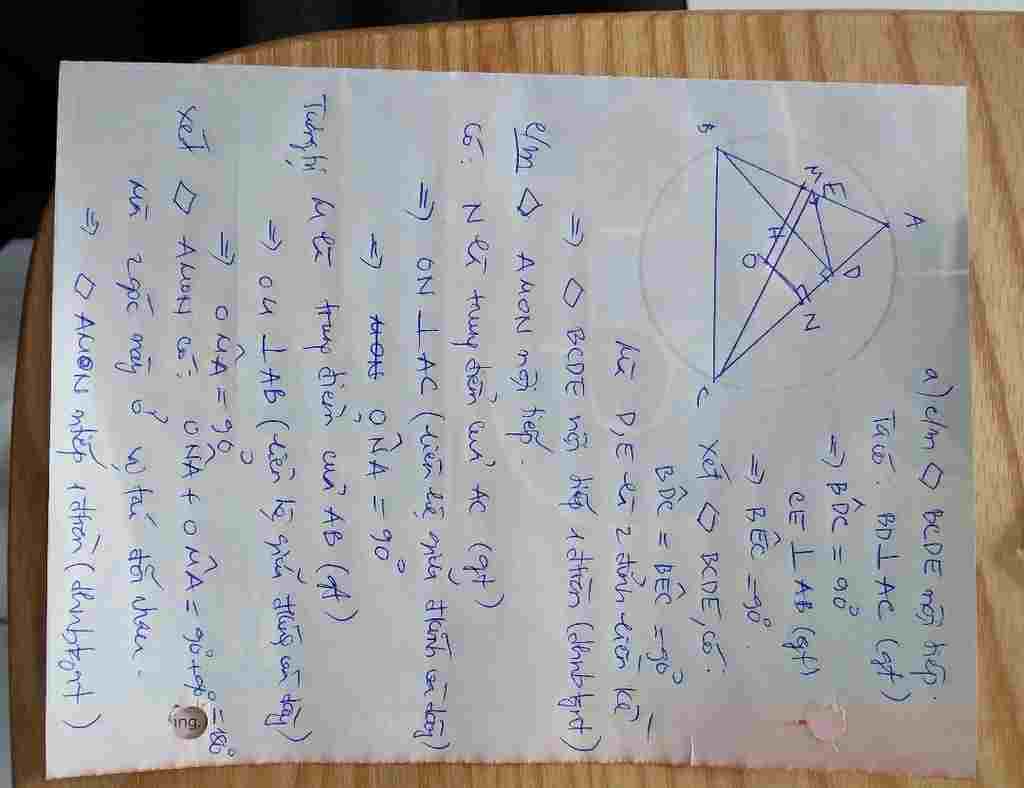 a) c/m ◇ BCDE nội tiếp.
Ta có: BD ⊥ AC (gt)
=> BD̂C = 90°
CE ⊥ AB (gt)
=> BÊC = 90°.
A
E
M
D
H
O
N
B
C
Xét ◇ BCDE, có:
BD̂C = BÊC = 90°
Mà D, E là 2 đỉnh liên kề
=> ◇ BCDE nội tiếp 1 đtròn (dhnbtgnt)
c/m ◇ AMON nội tiếp.
Có: N là trung điểm của AC (gt)
=> ON ⊥ AC (liên hệ giữa đkính và dây)
=> ON̂A = 90°
Tương tự M là trung điểm của AB (gt)
=> OM ⊥ AB (liên hệ giữa đkính và dây)
=> ON̂A = 90°
Xét ◇ AMON có: ON̂A + OM̂A = 90° + 90° = 180°
Mà 2 góc này ở vị trí đối nhau.
=> ◇ AMON ntiếp 1 đtròn (dhnbtgnt)
ing.